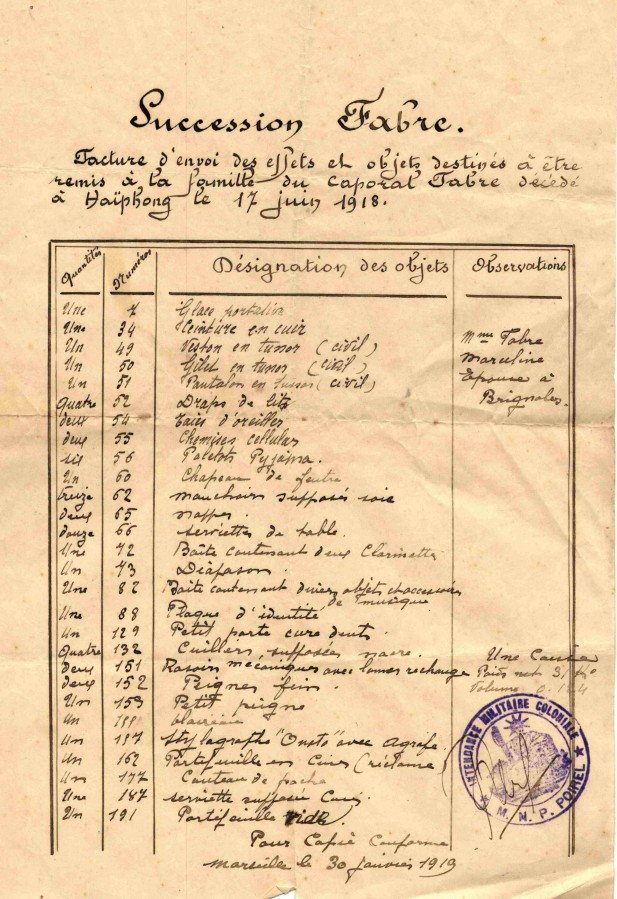 Succession Fabre.
Facture d'envoi des effets et objets destinés à être
remis à la famille du Caporal Fabre décédé
à Haïphong le 17 juin 1918.
Quantités Numéros Désignation des objets Observations
Une Glace portative
Une 34 Ceinture en cuir
Un 49 Veston en tussor (civil)
Un 50 Gilet en tussor (civil)
Un 51 Pantalon en tussor (civil)
Mme Fabre
Marceline
Épouse à
Brignoles.
quatre 52 Draps de lits
deux 54 Taies d'oreiller
deux 55 Chemises cellular
six 56 Paletots Pyjama.
Un 60 Chapeau de feutre
treize 62 mouchoirs supposés soie
deux 65 nappes
douze 66 serviettes de table.
Une 72 Boîte contenant deux Clarinettes
Un 73 Diapason.
Une 82 Boîte contenant divers objets et accessoires
de musique
Une 88 Plaque d'identité
Un 129 Petit porte cure dents.
Quatre 132 Cuillers, supposées nacre.
deux 151 Rasoirs mécaniques avec lames rechange
deux 152 Peignes fins.
Un 153 Petit peigne
Un
Un 157 Stylographe "Onoto" avec Agrafe.
Un 162 Portefeuille en Cuir (réclame
Un 177 Couteau de poche
Une 187 serviette supposée Cuir.
Un 191 Portefeuille vide
Une Caisse
Poids net 31 Ko
Volume 0.124
INTENDANCE MILITAIRE COLONIALE
M. N. P. POINEL
Pour Copie Conforme
Marseille le 30 janvier 1919